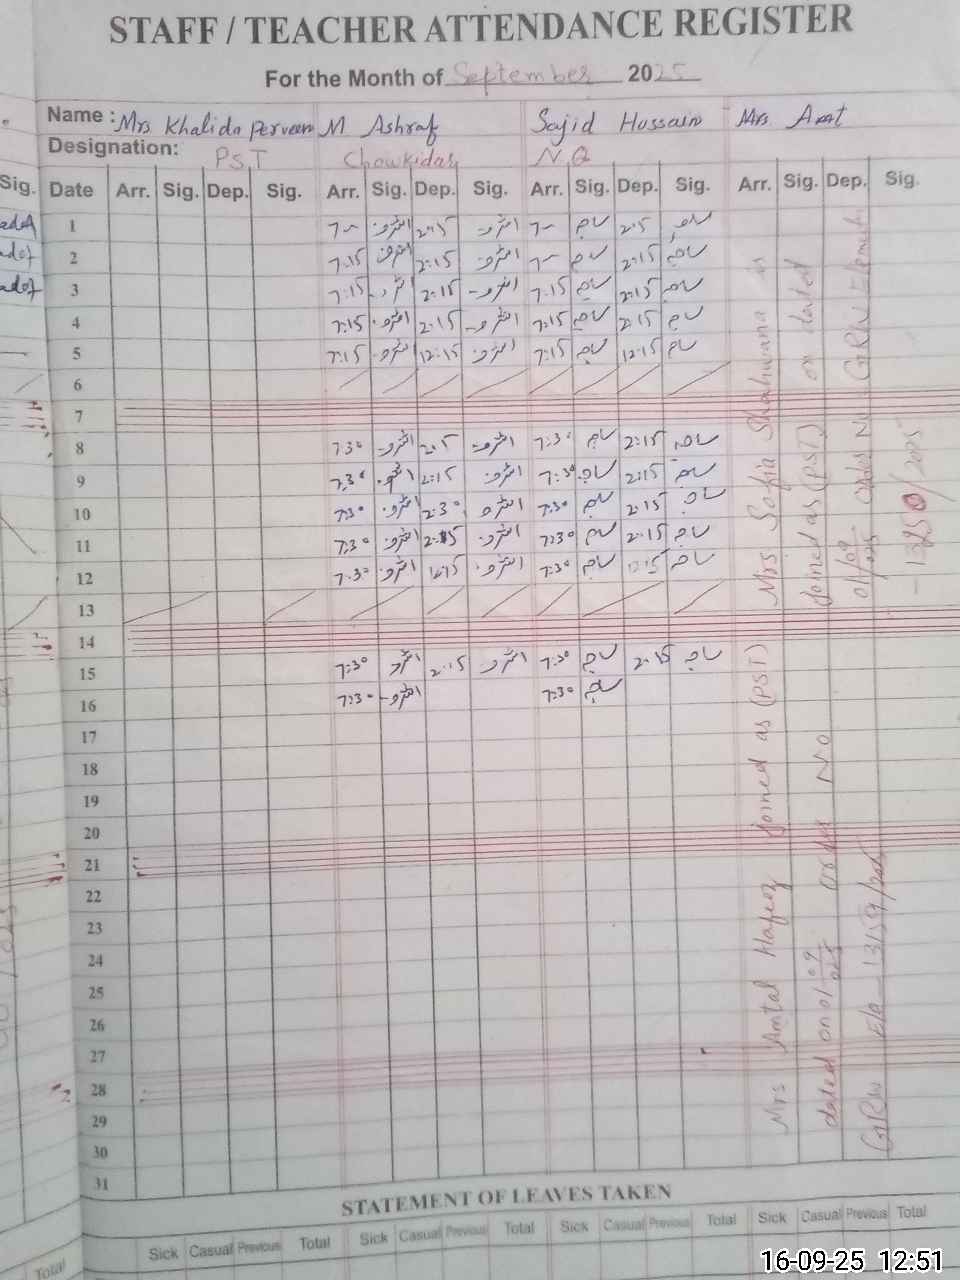 STAFF / TEACHER ATTENDANCE REGISTER
For the Month of September 2025
Name : Mrs Khalida Perveen M Ashraf Sajid Hussain Mrs. Amt
Designation: P.S.T Chowkidar N.Q
Sig. Date Arr. Sig. Dep. Sig. Arr. Sig. Dep. Sig. Arr. Sig. Dep. Sig. Arr. Sig. Dep. Sig.
1 7- اشرف 2:15 اشرف 7-
2 7:15 اشرف 2:15 اشرف 7- 2:15
3 7:15 2:15 اشرف 7:15 2:15
4 7:15 اشرف 2:15 اشرف 7:15 2:15
5 7:15 اشرف 12:15 اشرف 7:15 12:15
6
7
8 7:30 اشرف اشرف 7:30 2:15
9 7:30 اشرف 2:15 اشرف 7:30 2:15
10 7:30 اشرف 2:30 اشرف 7:30 2:15
11 7:30 اشرف 2:15 اشرف 7:30 2:15
12 7:30 اشرف 12:15 اشرف 7:30 12:15
13
14
15 7:30 اشرف 2:15 اشرف 7:30 2:15
16 7:30 اشرف 7:30
17
18
19
20
21
22
23
24
25
26
27
28
29
30
31
Mrs Sofia Shahwana is
joined as (PST) on dated
01/09/2025 Order No GRW Elementry
-13250/2025
Mrs Amtal Hafeez joined as (PST)
dated on 01/09/2025 order No
GRW Ele 13159/2025
STATEMENT OF LEAVES TAKEN
Total Sick Casual Previous Total Sick Casual Previous Total Sick Casual Previous Total Sick Casual Previous Total
16-09-25 12:51